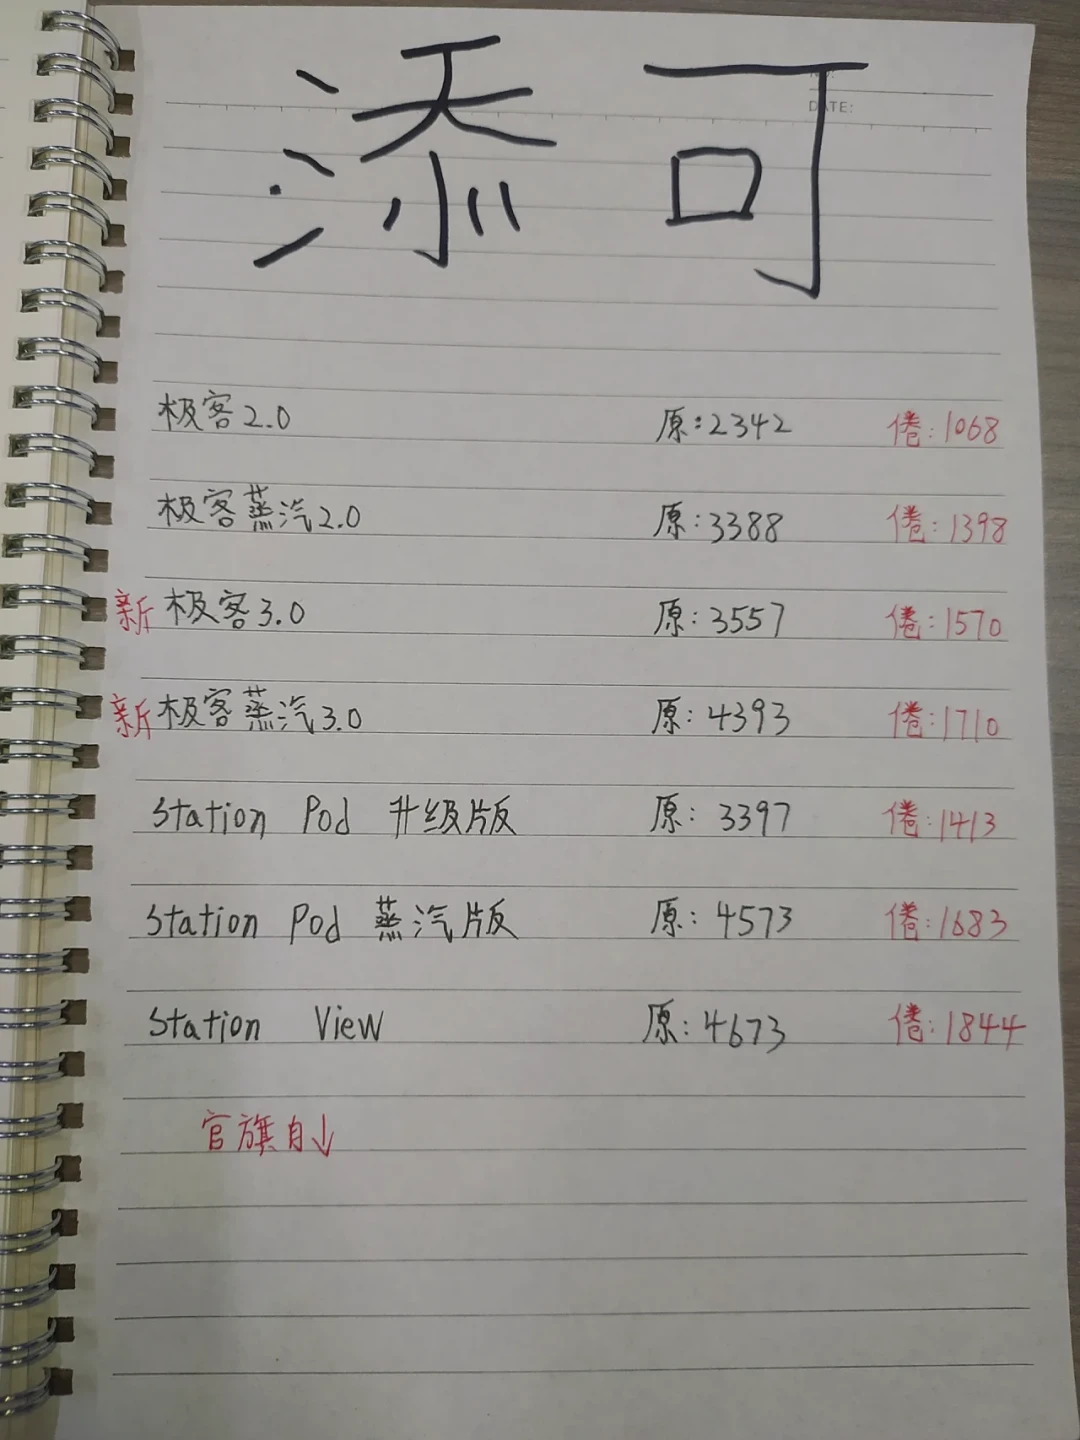 添可
DATE:
极客2.0 原:2342 倦:1068
极客蒸汽2.0 原:3388 倦:1398
新 极客3.0 原:3557 倦:1570
新 极客蒸汽3.0 原:4393 倦:1710
Station Pod 升级版 原:3397 倦:1413
Station Pod 蒸汽版 原:4573 倦:1683
Station View 原:4673 倦:1844
官旗自↓